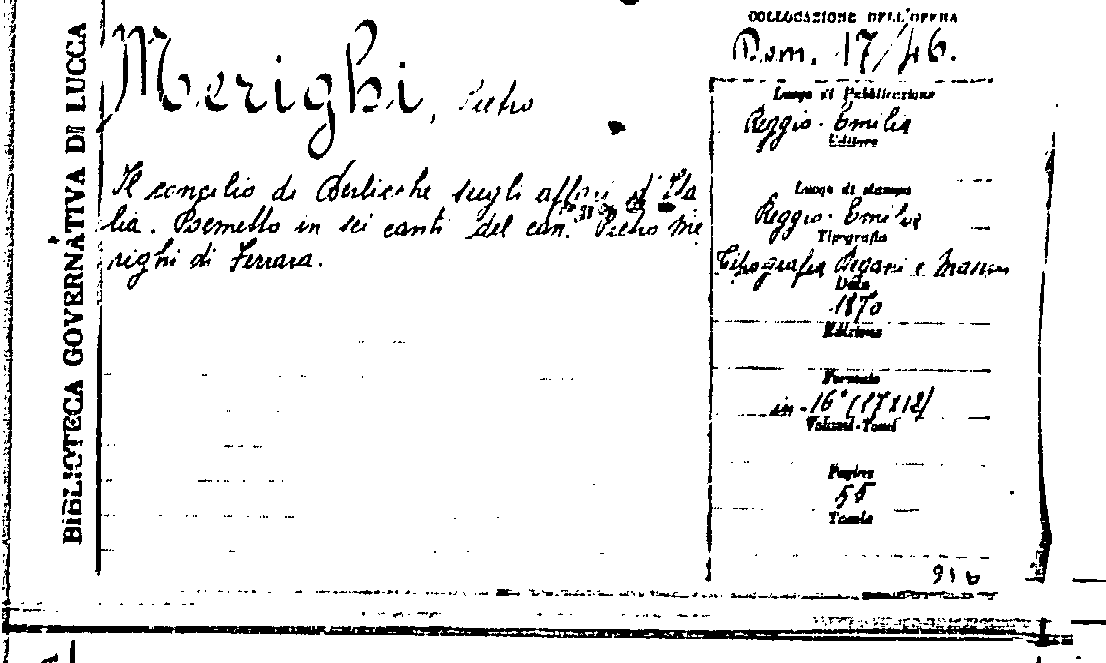 BIBLIOTECA GOVERNATIVA DI LUCCA
Merighi, Pietro
Il concilio di Berlicche sugli affari d'Ita
lia. Poemetto in sei canti del can. Pietro Me
righi di Ferrara.
COLLOCAZIONE DELL'OPERA
Dom. 17/46.
Luogo di Pubblicazione
Reggio-Emilia
Editore
Luogo di stampa
Reggio-Emilia
Tipografia
Tipografia Degani e
Data
1870
Edizione
Formato
in-16° (17x12)
Volumi-Tomi
Pagine
55
Tavole